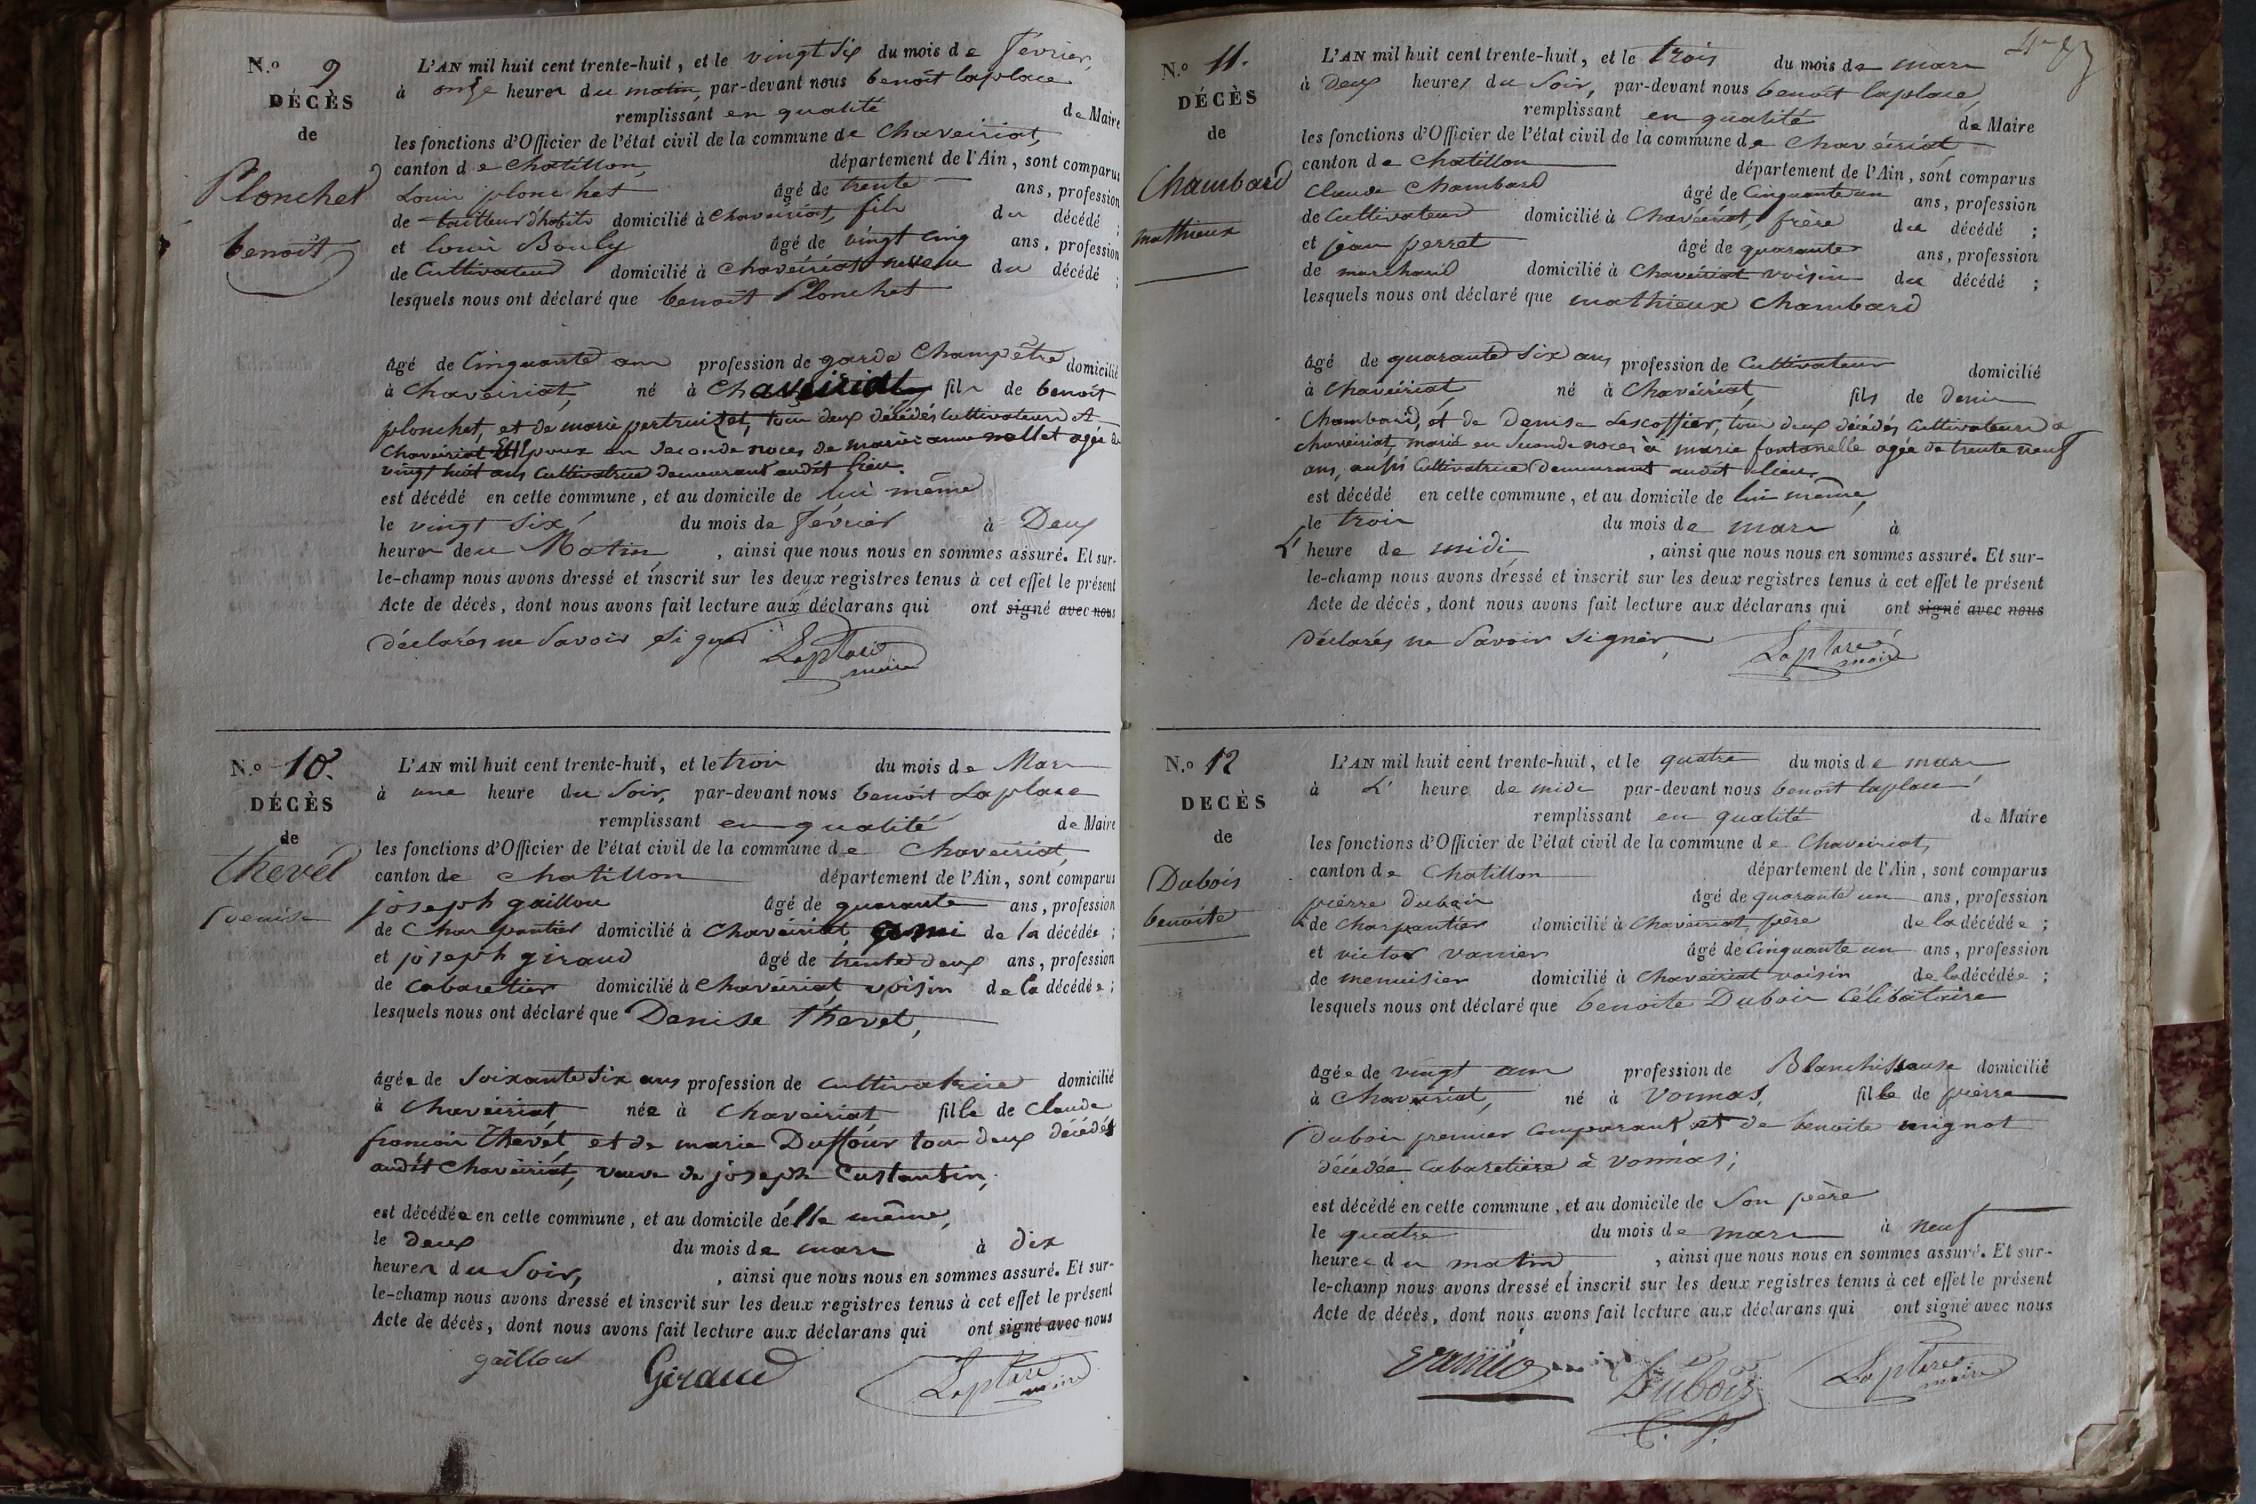 N.o 9
DÉCÈS
de
Plonchet
benoît
L'AN mil huit cent trente-huit, et le vingt six du mois de février,
à onze heures du matin, par-devant nous benoît laplace
remplissant en qualité de Maire
les fonctions d'Officier de l'état civil de la commune de Chaveiriat,
canton de Chatillon, département de l'Ain, sont comparus
Louis plonchet âgé de trente ans, profession
de tailleur d'habits domicilié à Chaveiriat, fils du décédé ;
et Louis Bouly âgé de vingt cinq ans, profession
de Cultivateur domicilié à Chaveiriat neveu du décédé ;
lesquels nous ont déclaré que benoît Plonchet
âgé de Cinquante ans profession de garde Champêtre domicilié
à Chaveiriat, né à Chaveiriat, fils de benoît
plonchet, et de marie pertruizet, tous deux décédés Cultivateurs A
Chaveiriat Et Epoux en Seconde noces de marie anne nallet agée de
vingt huit ans Cultivatrice demeurant audit lieu.
est décédé en cette commune, et au domicile de lui même
le vingt six du mois de février à Deux
heures du Matin, ainsi que nous nous en sommes assuré. Et sur-
le-champ nous avons dressé et inscrit sur les deux registres tenus à cet effet le présent
Acte de décès, dont nous avons fait lecture aux déclarans qui ont signé avec nous
déclarés ne Savoir signer Laplace
maire
N.o 10.
DÉCÈS
de
thevet
denise
L'AN mil huit cent trente-huit, et le trois du mois de Mars
à une heure du Soir, par-devant nous benoît Laplace
remplissant en qualité de Maire
les fonctions d'Officier de l'état civil de la commune de Chaveiriat,
canton de Chatillon département de l'Ain, sont comparus
joseph gaillou âgé de quarante ans, profession
de Charpentier domicilié à Chaveiriat, ami de la décédée ;
et joseph giraud âgé de trente deux ans, profession
de cabaretier domicilié à Chaveiriat, voisin de la décédée ;
lesquels nous ont déclaré que Denise thevet,
âgée de Soixante six ans profession de cultivatrice domicilié
à Chaveiriat, née à Chaveiriat, fille de Claude
françois thevet, et de marie Duffour tous deux décédés
audit Chaveiriat, veuve de joseph Custantin,
est décédée en cette commune, et au domicile d'elle même,
le deux du mois de mars à dix
heures du Soir, ainsi que nous nous en sommes assuré. Et sur-
le-champ nous avons dressé et inscrit sur les deux registres tenus à cet effet le présent
Acte de décès, dont nous avons fait lecture aux déclarans qui ont signé avec nous
gaillou Giraud Laplace
maire
N.o 11.
DÉCÈS
de
Chambard
mathieux
L'AN mil huit cent trente-huit, et le trois du mois de mars
à Deux heures du Soir, par-devant nous benoît laplace,
remplissant en qualité de Maire
les fonctions d'Officier de l'état civil de la commune de Chaveiriat
canton de Chatillon département de l'Ain, sont comparus
Claude Chambard âgé de Cinquante un ans, profession
de Cultivateur domicilié à Chaveiriat, frère du décédé ;
et jean perret âgé de quarante ans, profession
de marchand domicilié à Chaveiriat voisin du décédé ;
lesquels nous ont déclaré que mathieux Chambard
âgé de quarante six ans profession de Cultivateur domicilié
à Chaveiriat, né à Chaveiriat, fils de denis
Chambard, et de Denise Lescoffier, tous deux décédés Cultivateurs a
Chaveiriat, marié en Seconde noces à marie fontanelle agée de trente neuf
ans, aussi Cultivatrice demeurant audit lieu,
est décédé en cette commune, et au domicile de lui même,
le trois du mois de mars à
L' heure de midi, ainsi que nous nous en sommes assuré. Et sur-
le-champ nous avons dressé et inscrit sur les deux registres tenus à cet effet le présent
Acte de décès, dont nous avons fait lecture aux déclarans qui ont signé avec nous
déclarés ne Savoir signer, Laplace
maire
N.o 12
DECÈS
de
Dubois
benoite
L'AN mil huit cent trente-huit, et le quatre du mois de mars
à L' heure de midi par-devant nous benoît laplace
remplissant en qualité de Maire
les fonctions d'Officier de l'état civil de la commune de Chaveiriat,
canton de Chatillon département de l'Ain, sont comparus
pierre dubois âgé de quarante un ans, profession
de Charpentier domicilié à Chaveiriat, père de la décédée ;
et victor vanier âgé de Cinquante un ans, profession
de menuisier domicilié à Chaveiriat voisin de la décédée ;
lesquels nous ont déclaré que benoite Dubois Célibataire
âgée de vingt ans profession de Blanchisseuse domicilié
à Chaveiriat, né à Vonnas, fille de pierre
dubois premier comparant et de benoite mignot
décédée Cabaretière à Vonnas;
est décédé en cette commune, et au domicile de Son père
le quatre du mois de mars à neuf
heures du matin, ainsi que nous nous en sommes assuré. Et sur-
le-champ nous avons dressé et inscrit sur les deux registres tenus à cet effet le présent
Acte de décès, dont nous avons fait lecture aux déclarans qui ont signé avec nous
Dubois Laplace
maire